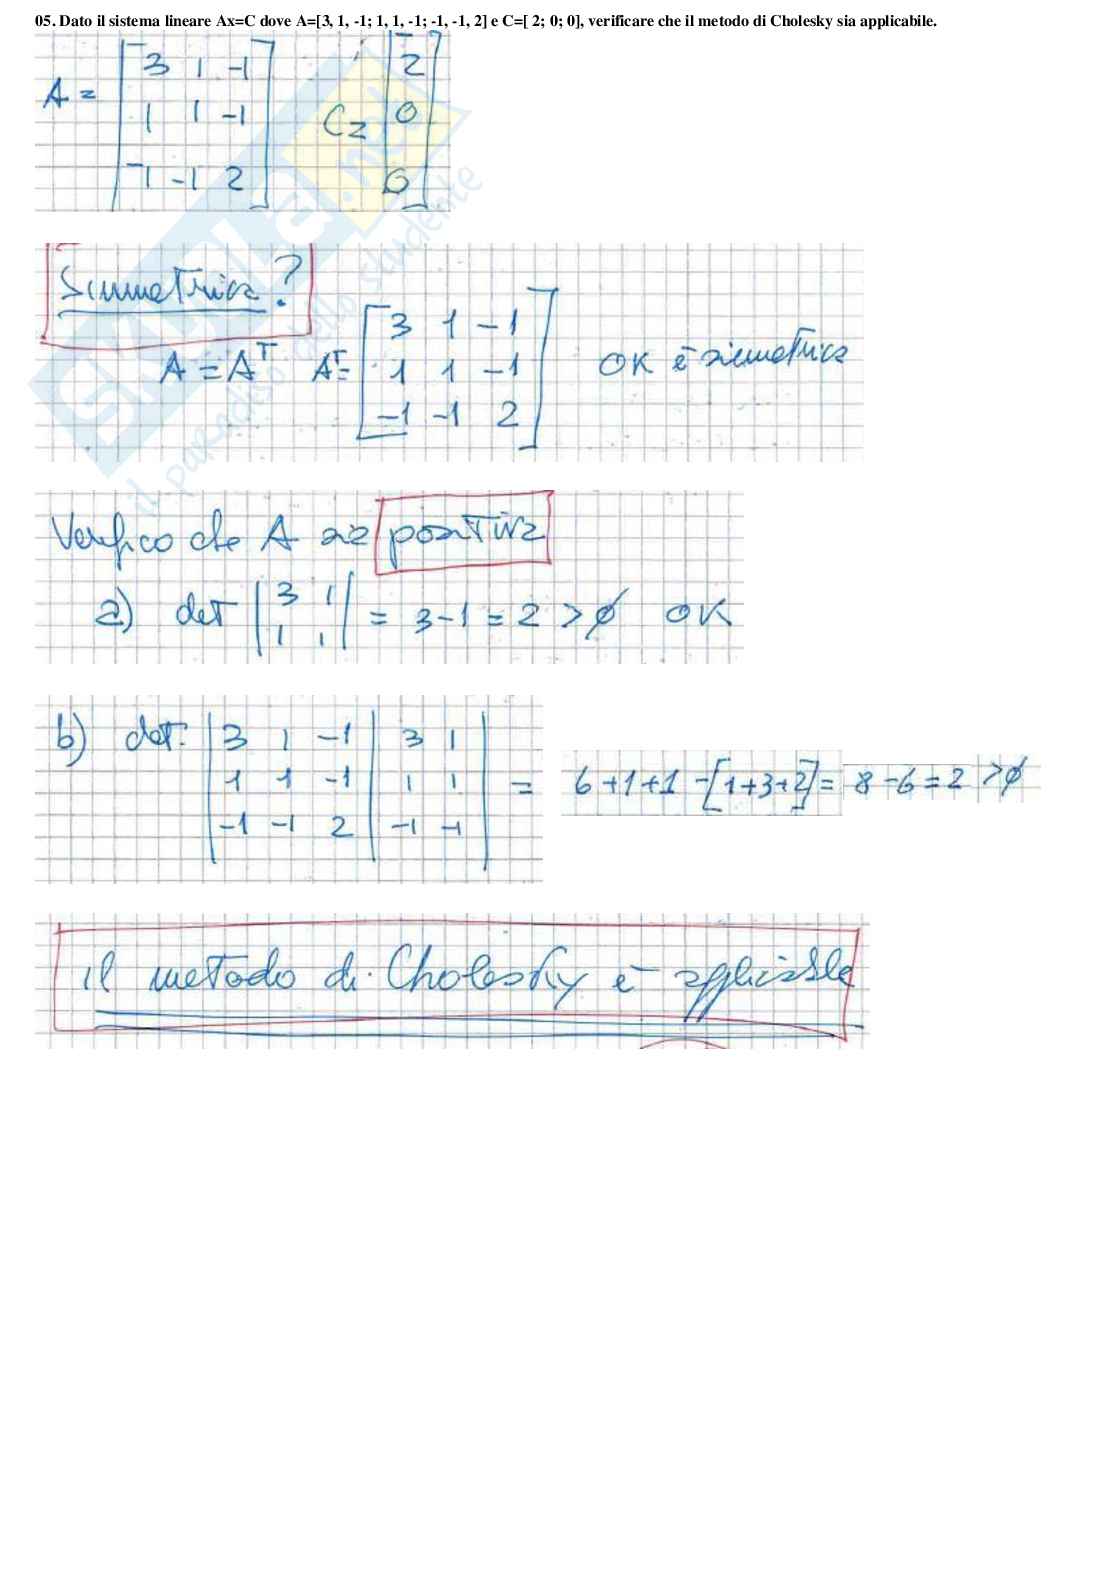 05. Dato il sistema lineare Ax=C dove A=[3, 1, -1; 1, 1, -1; -1, -1, 2] e C=[ 2; 0; 0], verificare che il metodo di Cholesky sia applicabile.
3 1 -1 2
A = 1 1 -1 C= 0
-1 -1 2 0
Simmetrica?
3 1 -1
A = A^T A^T= 1 1 -1 OK è simmetrica
-1 -1 2
Verifico che A sia positiva
3 1
a) det = 3-1 = 2 > 0 OK
1 1
b) det. 3 1 -1 3 1
1 1 -1 1 1 = 6+1+1 -[1+3+2]= 8-6=2 >0
-1 -1 2 -1 -1
il metodo di Cholesky è applicabile
SKUOLA.net
il paradiso dello studente